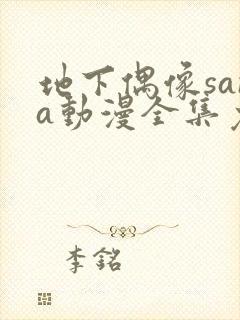 地下偶像sa
a动漫全集
李銘